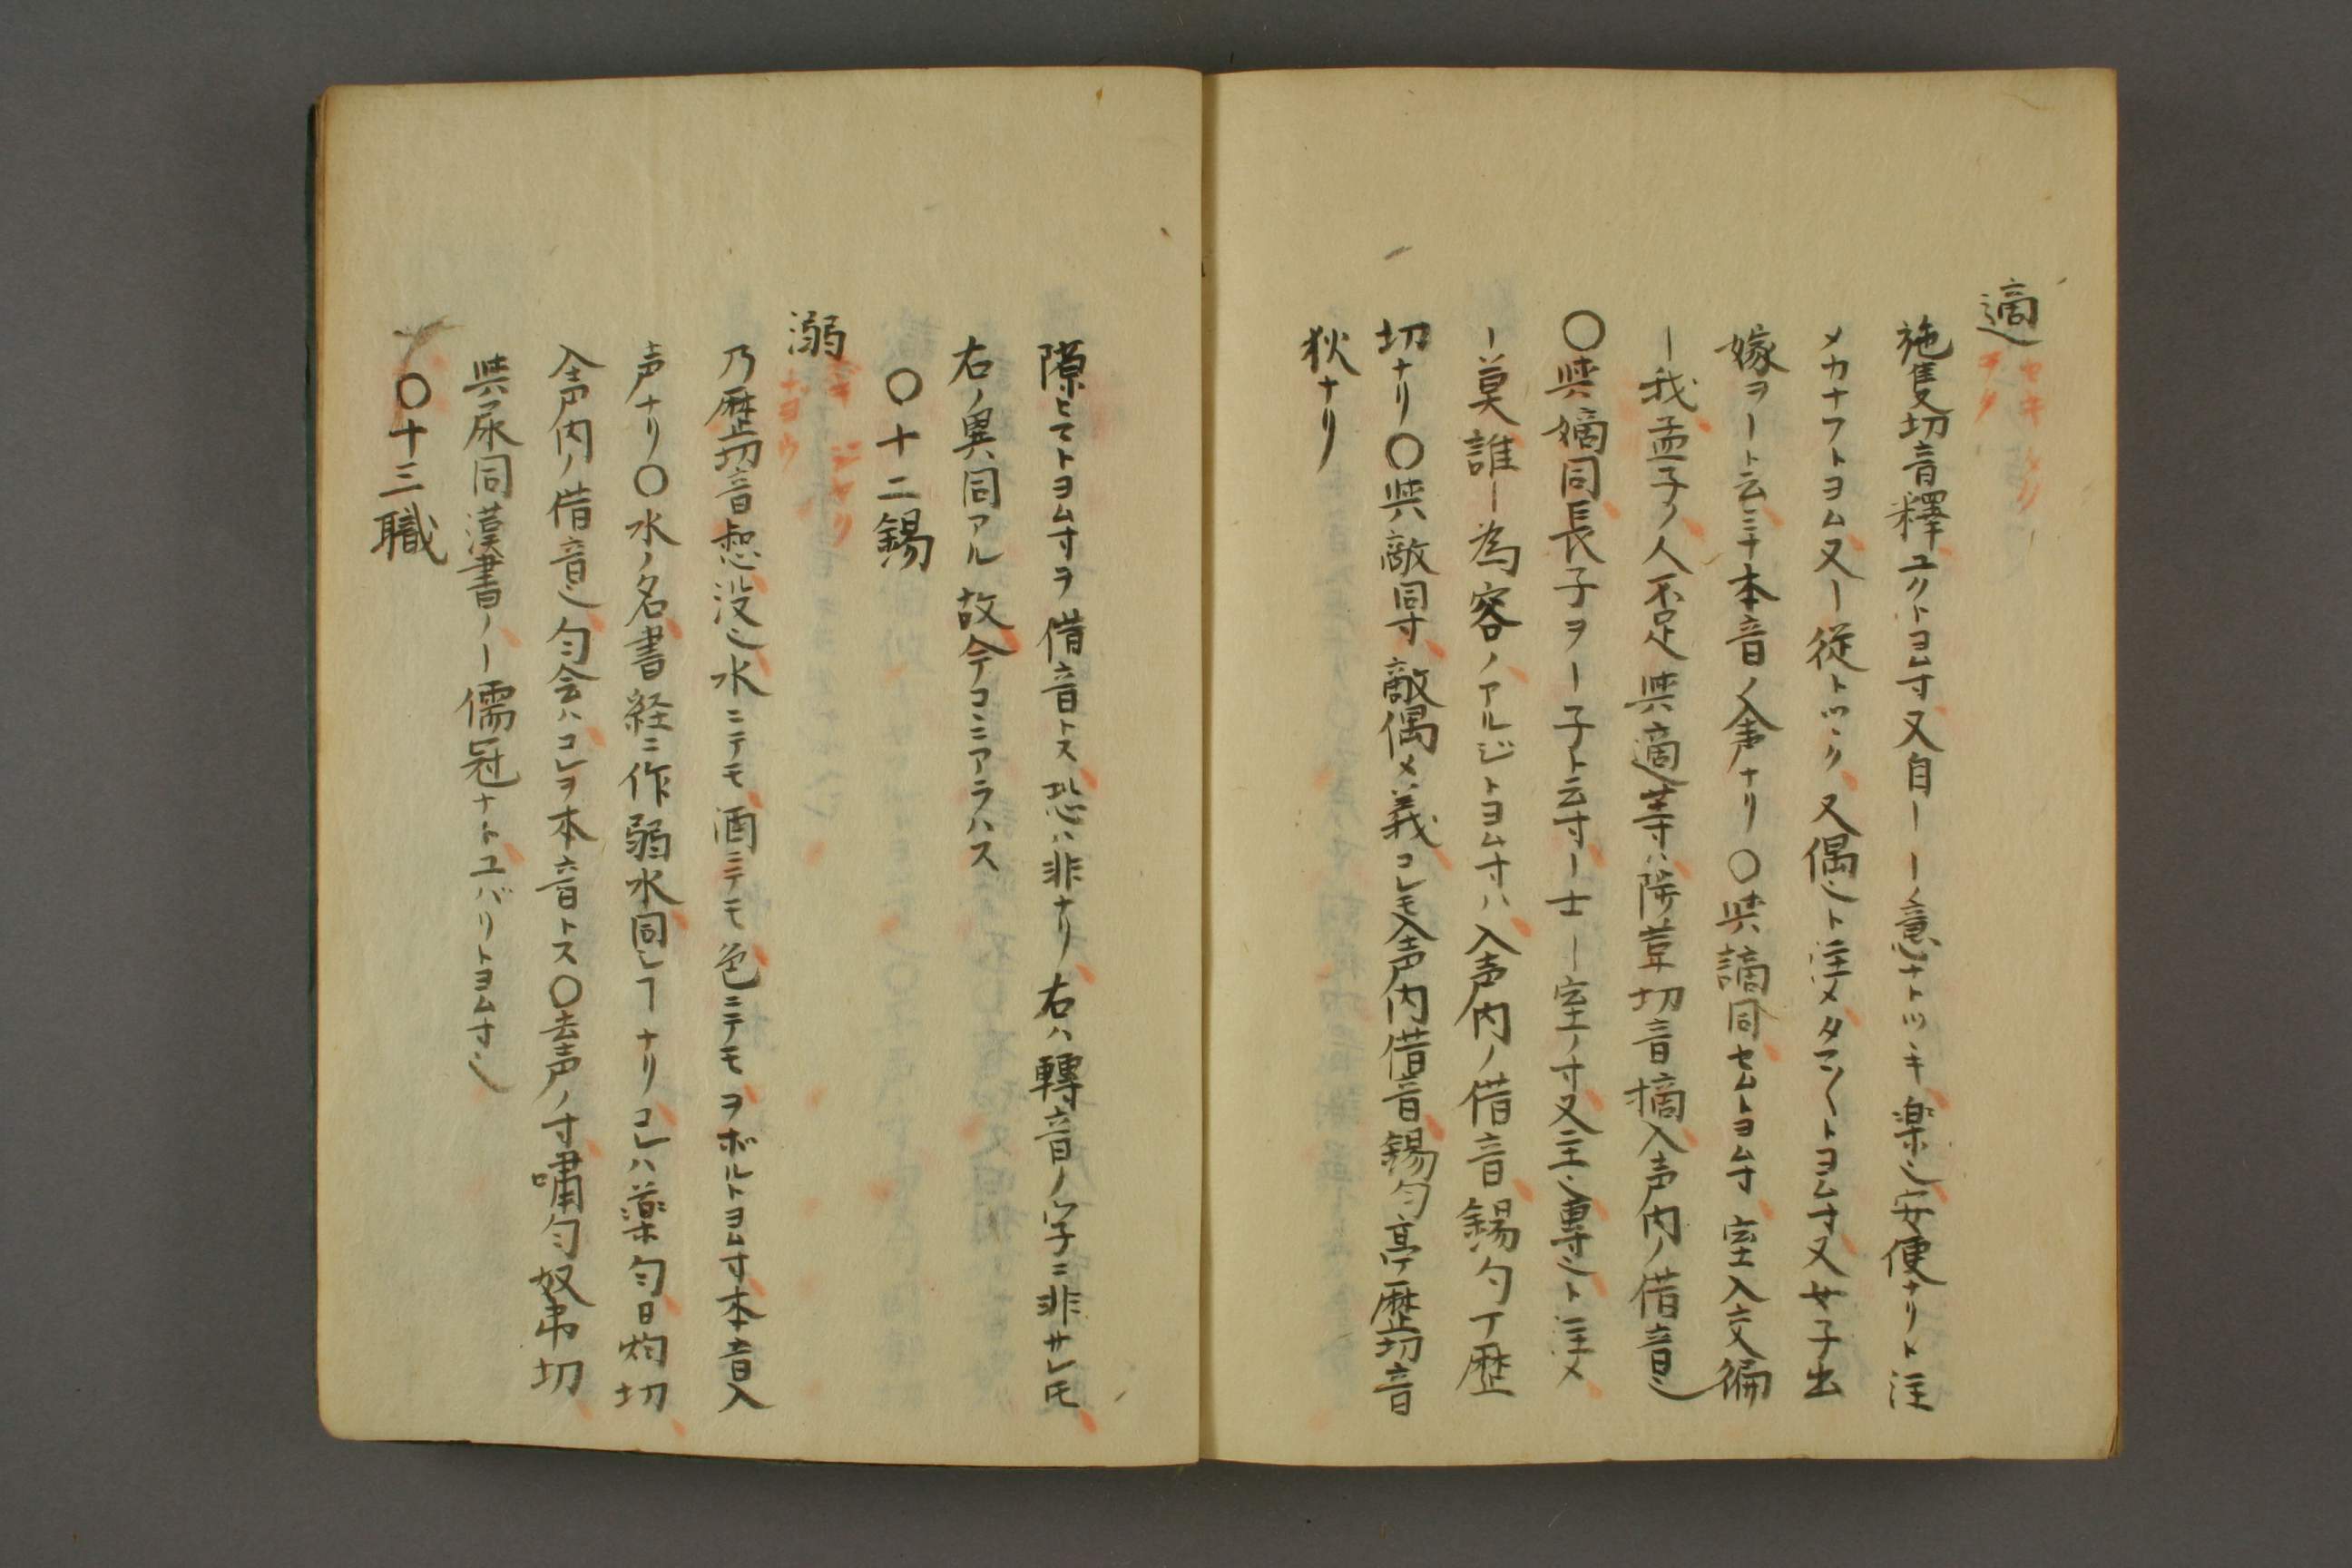 適
セキ
テキ
施隻切音釋ユクトヨム寸又自ーーノ意ナトツヽキ楽也安便ナリト注
メカナフトヨム又ー従トツヽク又偶也ト注メタマ〱トヨム寸又女子出
嫁ヲート云ミナ本音ノ入声ナリ〇與謫同セムトヨム寸室人交徧
ー我孟子ノ人不足與適等ハ陟革切音摘入声内ノ借音也
〇與嫡同長子ヲー子ト云寸ー士ー室ノ寸又主也專也ト注メ
ー莫誰ー為容ノアルジトヨム寸ハ入声内ノ借音錫匀丁歴
切ナリ〇與敵同寸敵偶メ義コレモ入声内借音錫匀亭歴切音
狄ナリ
隙トヨム寸ヲ借音トス恐ハ非ナリ右ハ轉音ノ字ニ非サレ𪜈
右ノ異同アル故今コヽニアラハス
〇十二錫
溺
ジヤク
ナヨウ
乃歴切音惄没也水ニテモ酒ニテモ色ニテモヲボルトヨム寸本音入
声ナリ〇水ノ名書経ニ作弱水同シヿナリコレハ藥匀日灼切
入声内ノ借音也匀会ハコレヲ本音トス〇去声ノ寸嘯匀奴弔切
與尿同漢書ノー儒冠ナトユバリトヨム寸也
〇十三職